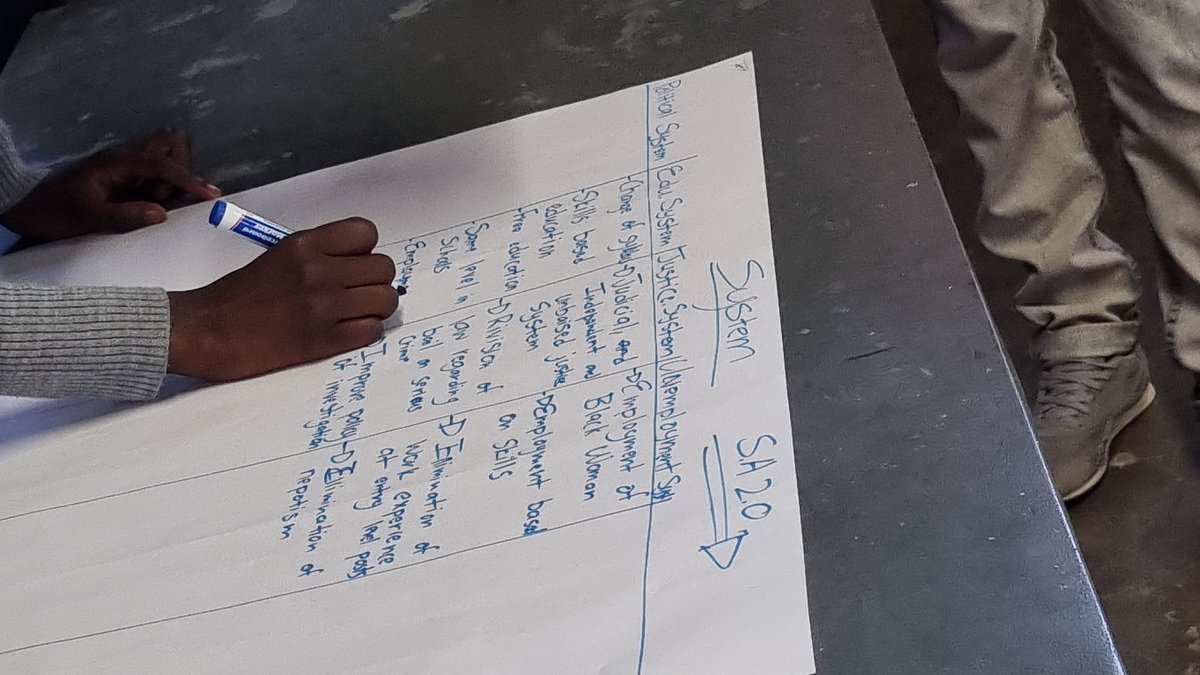 System SA 2.0
Political System Edu. System Justice System Unemployment
-Change of
-Skills based
education
-Free education
-Same level in
Schools
-Judicial and
Independent and
Unbaised justice
System
-Rivision of
law regarding
bail on serious
Crime
-Improve policy
of investigation
-Employment of
Black Woman
-Employment based
on Skills
-Ellimination of
Work experience
at entry level posts
-Ellimination of
nepotism